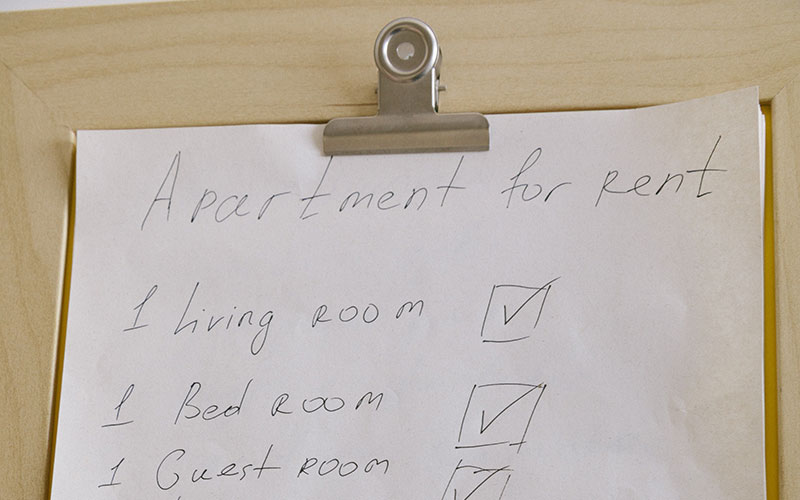 Apartment for rent
1 Living room ☑
1 Bed room ☑
1 Guest room ☑